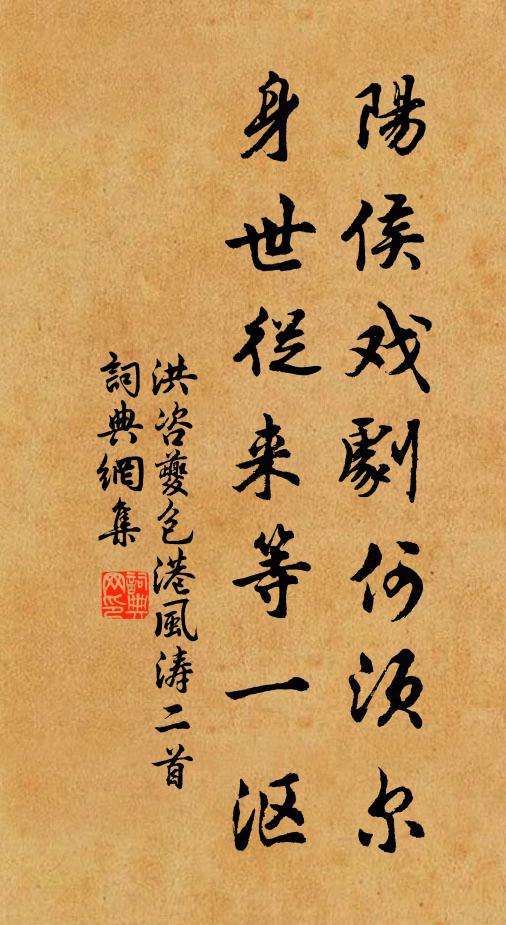 陽侯戏劇何须尔
身世從来等一沤
洪咨夔包港風涛二首
詞典網集
詞典网印